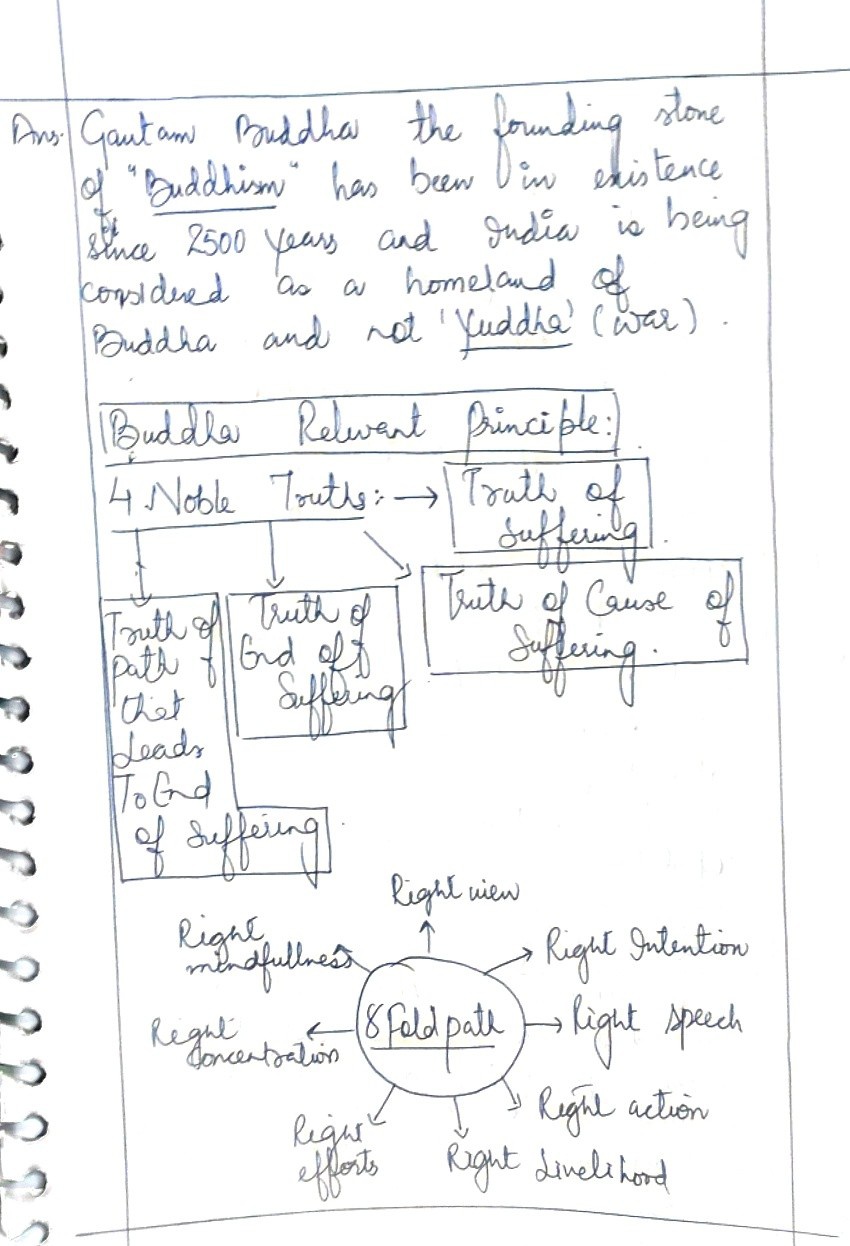 Ans. Gautam Buddha the founding stone
of "Buddhism" has been in existence
since 2500 years and India is being
considered as a homeland of
Buddha and not 'Yuddha' (war).
Buddha Relevant Principle:
4 Noble Truths: → Truth of
Suffering.
Truth of Cause of
Suffering.
Truth of
End of
Suffering
Truth of
path
that
Leads
To End
of Suffering
8 Fold path
Right view
Right Intention
Right speech
Right action
Right Livelihood
Right
efforts
Right
Concentration
Right
mindfullness